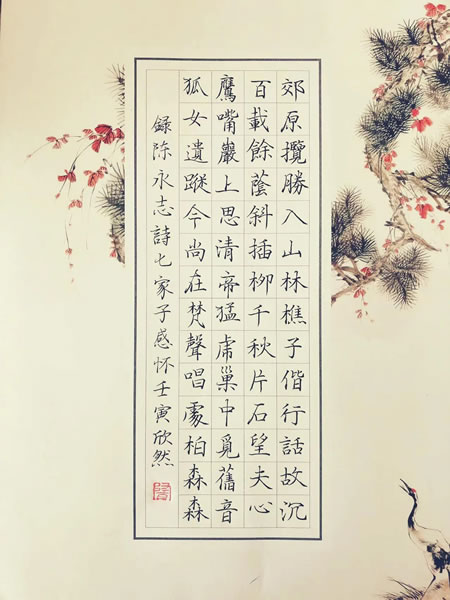 郊原攬勝入山林樵子偕行話故沉
百載餘蔭斜插柳千秋片石望夫心
鷹嘴巖上思清帝猛虎巢中覓舊音
狐女遺蹤今尚在梵聲唱處柏森森
録陈永志詩七家子感怀壬寅欣然